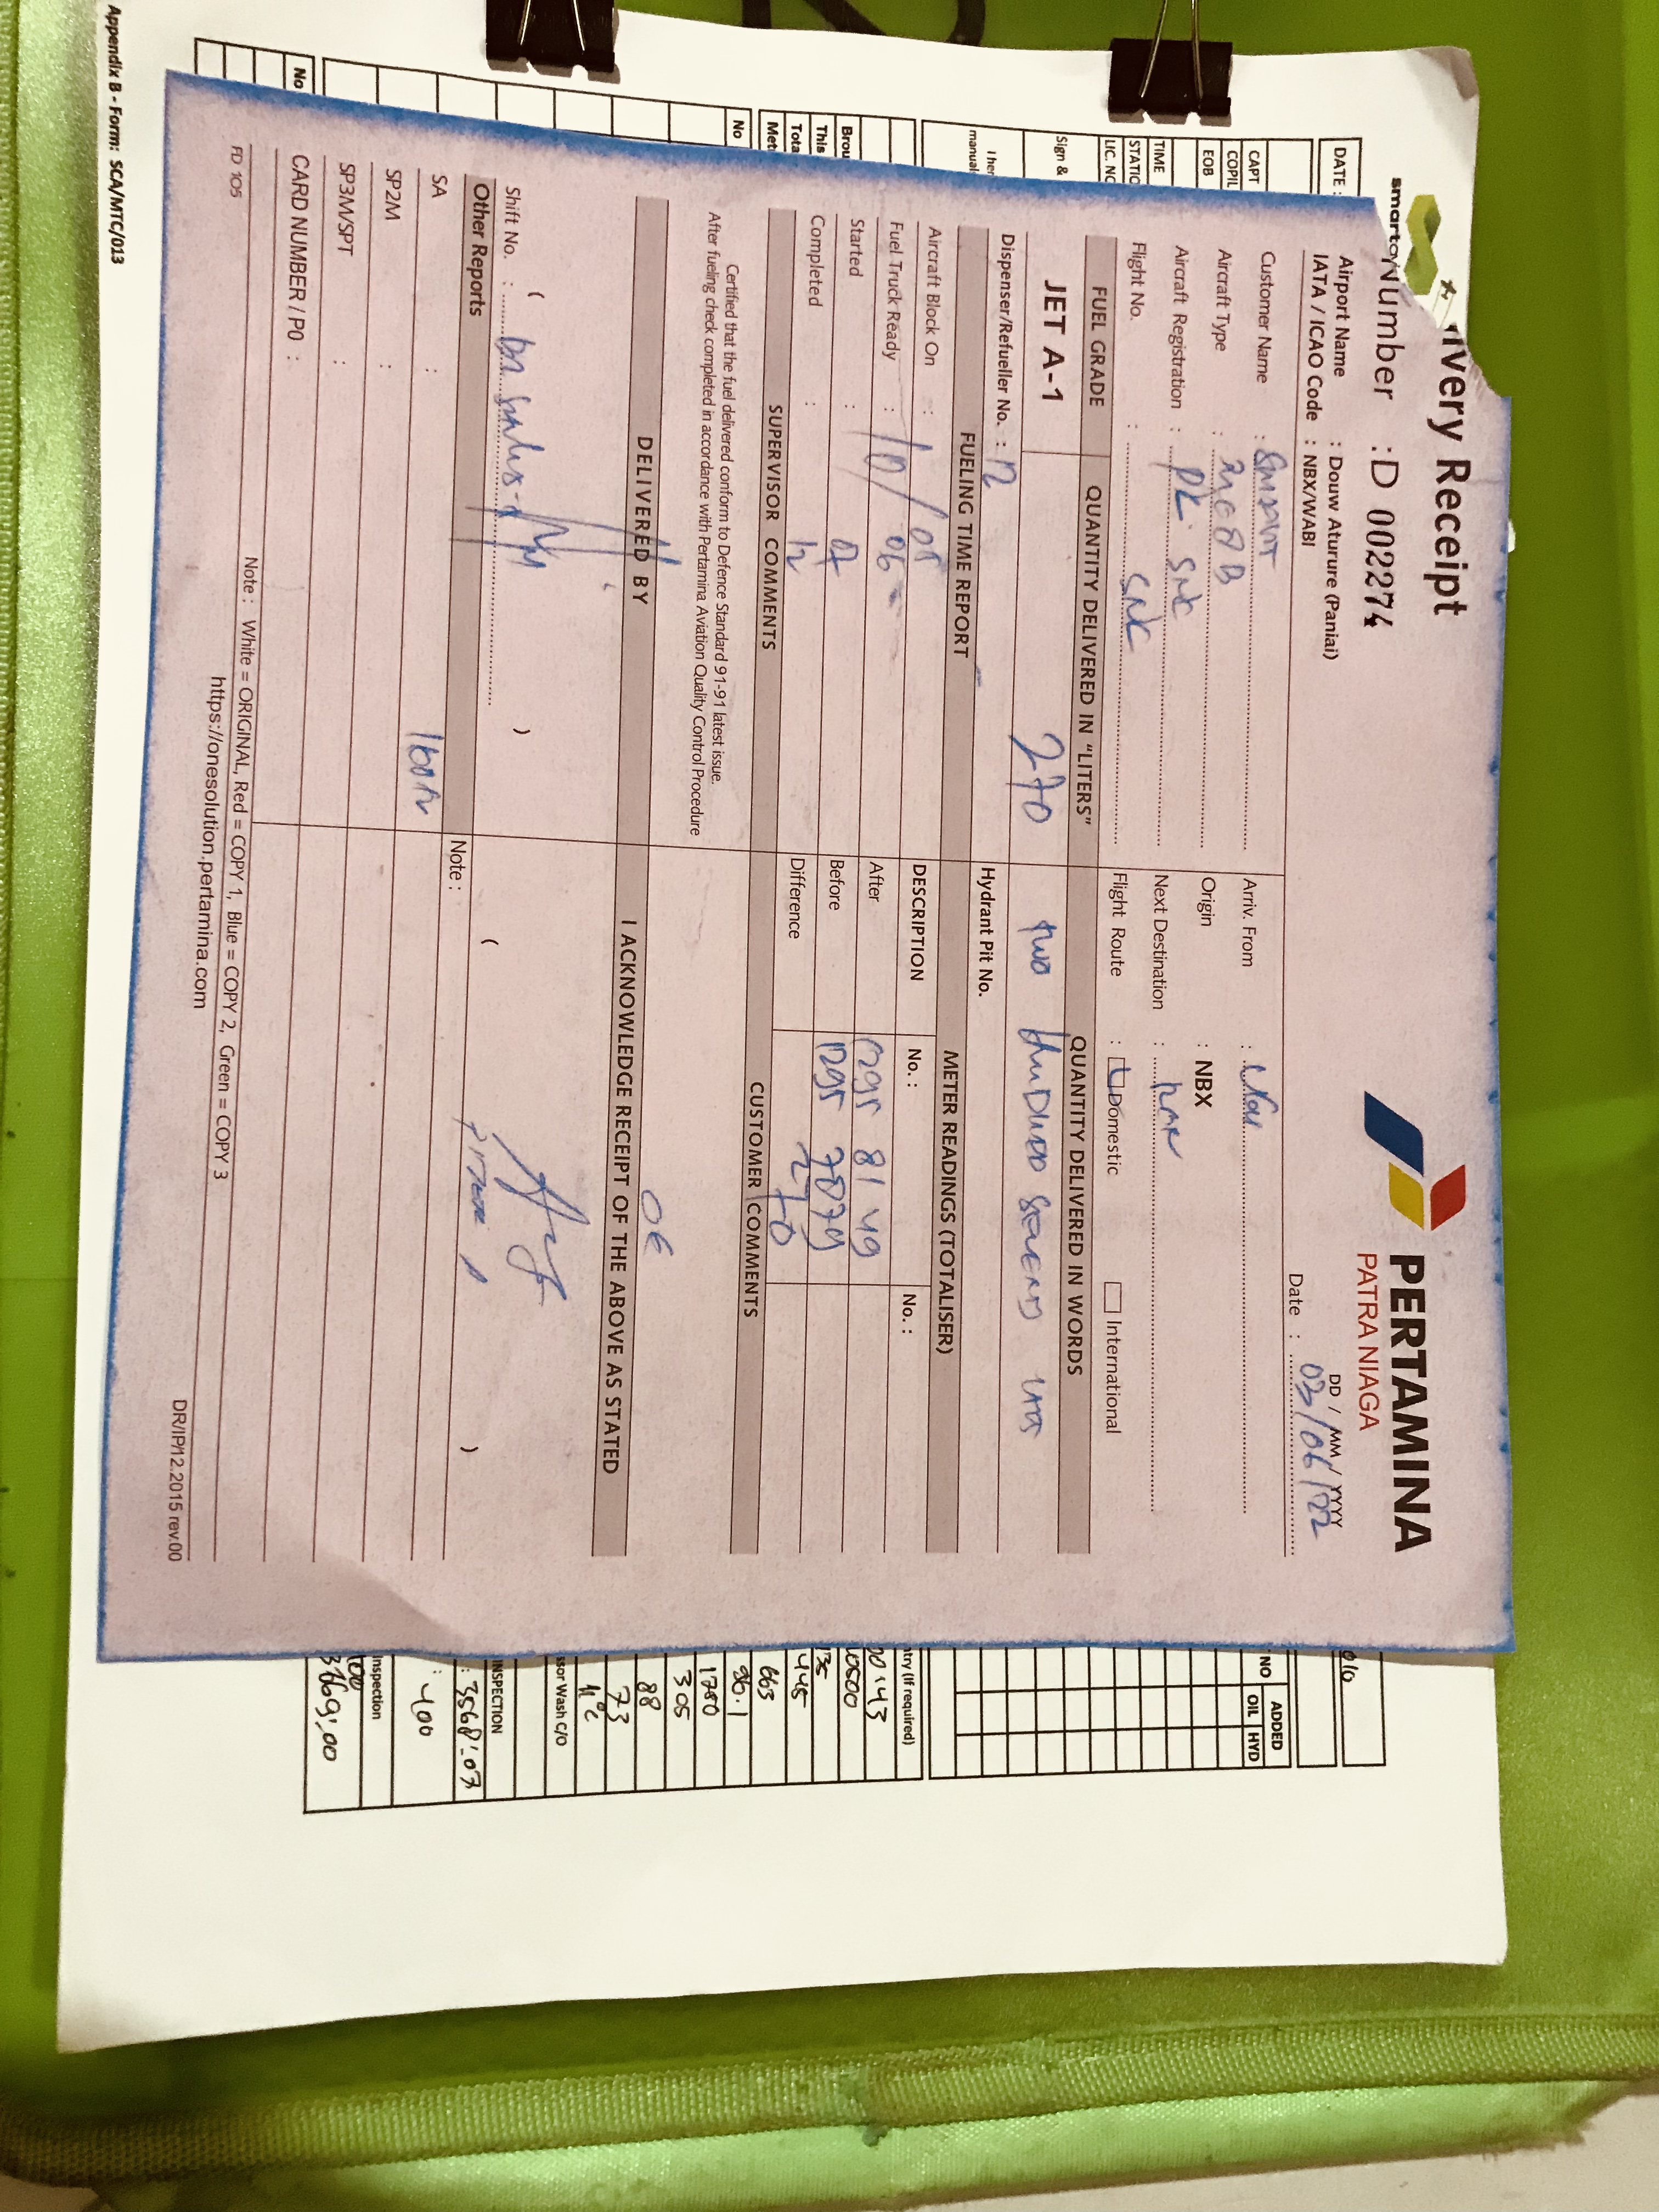 ivery Receipt
Number : D 002274
PERTAMINA
PATRA NIAGA
smart
Airport Name : Douw Aturure (Paniai)
IATA / ICAO Code : NBX/WABI
DD / MM / YYYY
Date : 03/06/22
Customer Name : SMART
Aircraft Type :
Aircraft Registration : PK. SNK
Flight No. : SNK
Arriv. From :
Origin : NBX
Next Destination :
Flight Route : Domestic International
FUEL GRADE QUANTITY DELIVERED IN "LITERS" QUANTITY DELIVERED IN WORDS
JET A-1 270 two HUNDRED SEVENTY
Dispenser/Refueller No. : 12 Hydrant Pit No.
FUELING TIME REPORT METER READINGS (TOTALISER)
Aircraft Block On : 10/05 DESCRIPTION No. : No. :
Fuel Truck Ready : 06 After 1295 8149
Started : 07 Before 1295 7879
Completed : 12 Difference 270
SUPERVISOR COMMENTS CUSTOMER COMMENTS
Certified that the fuel delivered conform to Defence Standard 91-91 latest issue.
After fueling check completed in accordance with Pertamina Aviation Quality Control Procedure
DELIVERED BY I ACKNOWLEDGE RECEIPT OF THE ABOVE AS STATED
Shift No. : ( ) ( )
Other Reports Note :
SA :
SP2M :
SP3M/SPT :
CARD NUMBER / PO :
Note : White = ORIGINAL, Red = COPY 1, Blue = COPY 2, Green = COPY 3
https://onesolution.pertamina.com
FD 105
DR/IP/12.2015 rev.00
DATE :
CAPT
COPIL
EOB
TIME
STATIO
LIC. NO
Sign &
I her
manual
Brou
This
Tota
Met
No
No
Appendix B - Form: SCA/MTC/013
NO ADDED
OIL HYD
ntry (If required)
00:43
445
663
96.1
1780
305
88
73
sor Wash C/O
INSPECTION
: 3568:03
: 400
nspection
3669:00